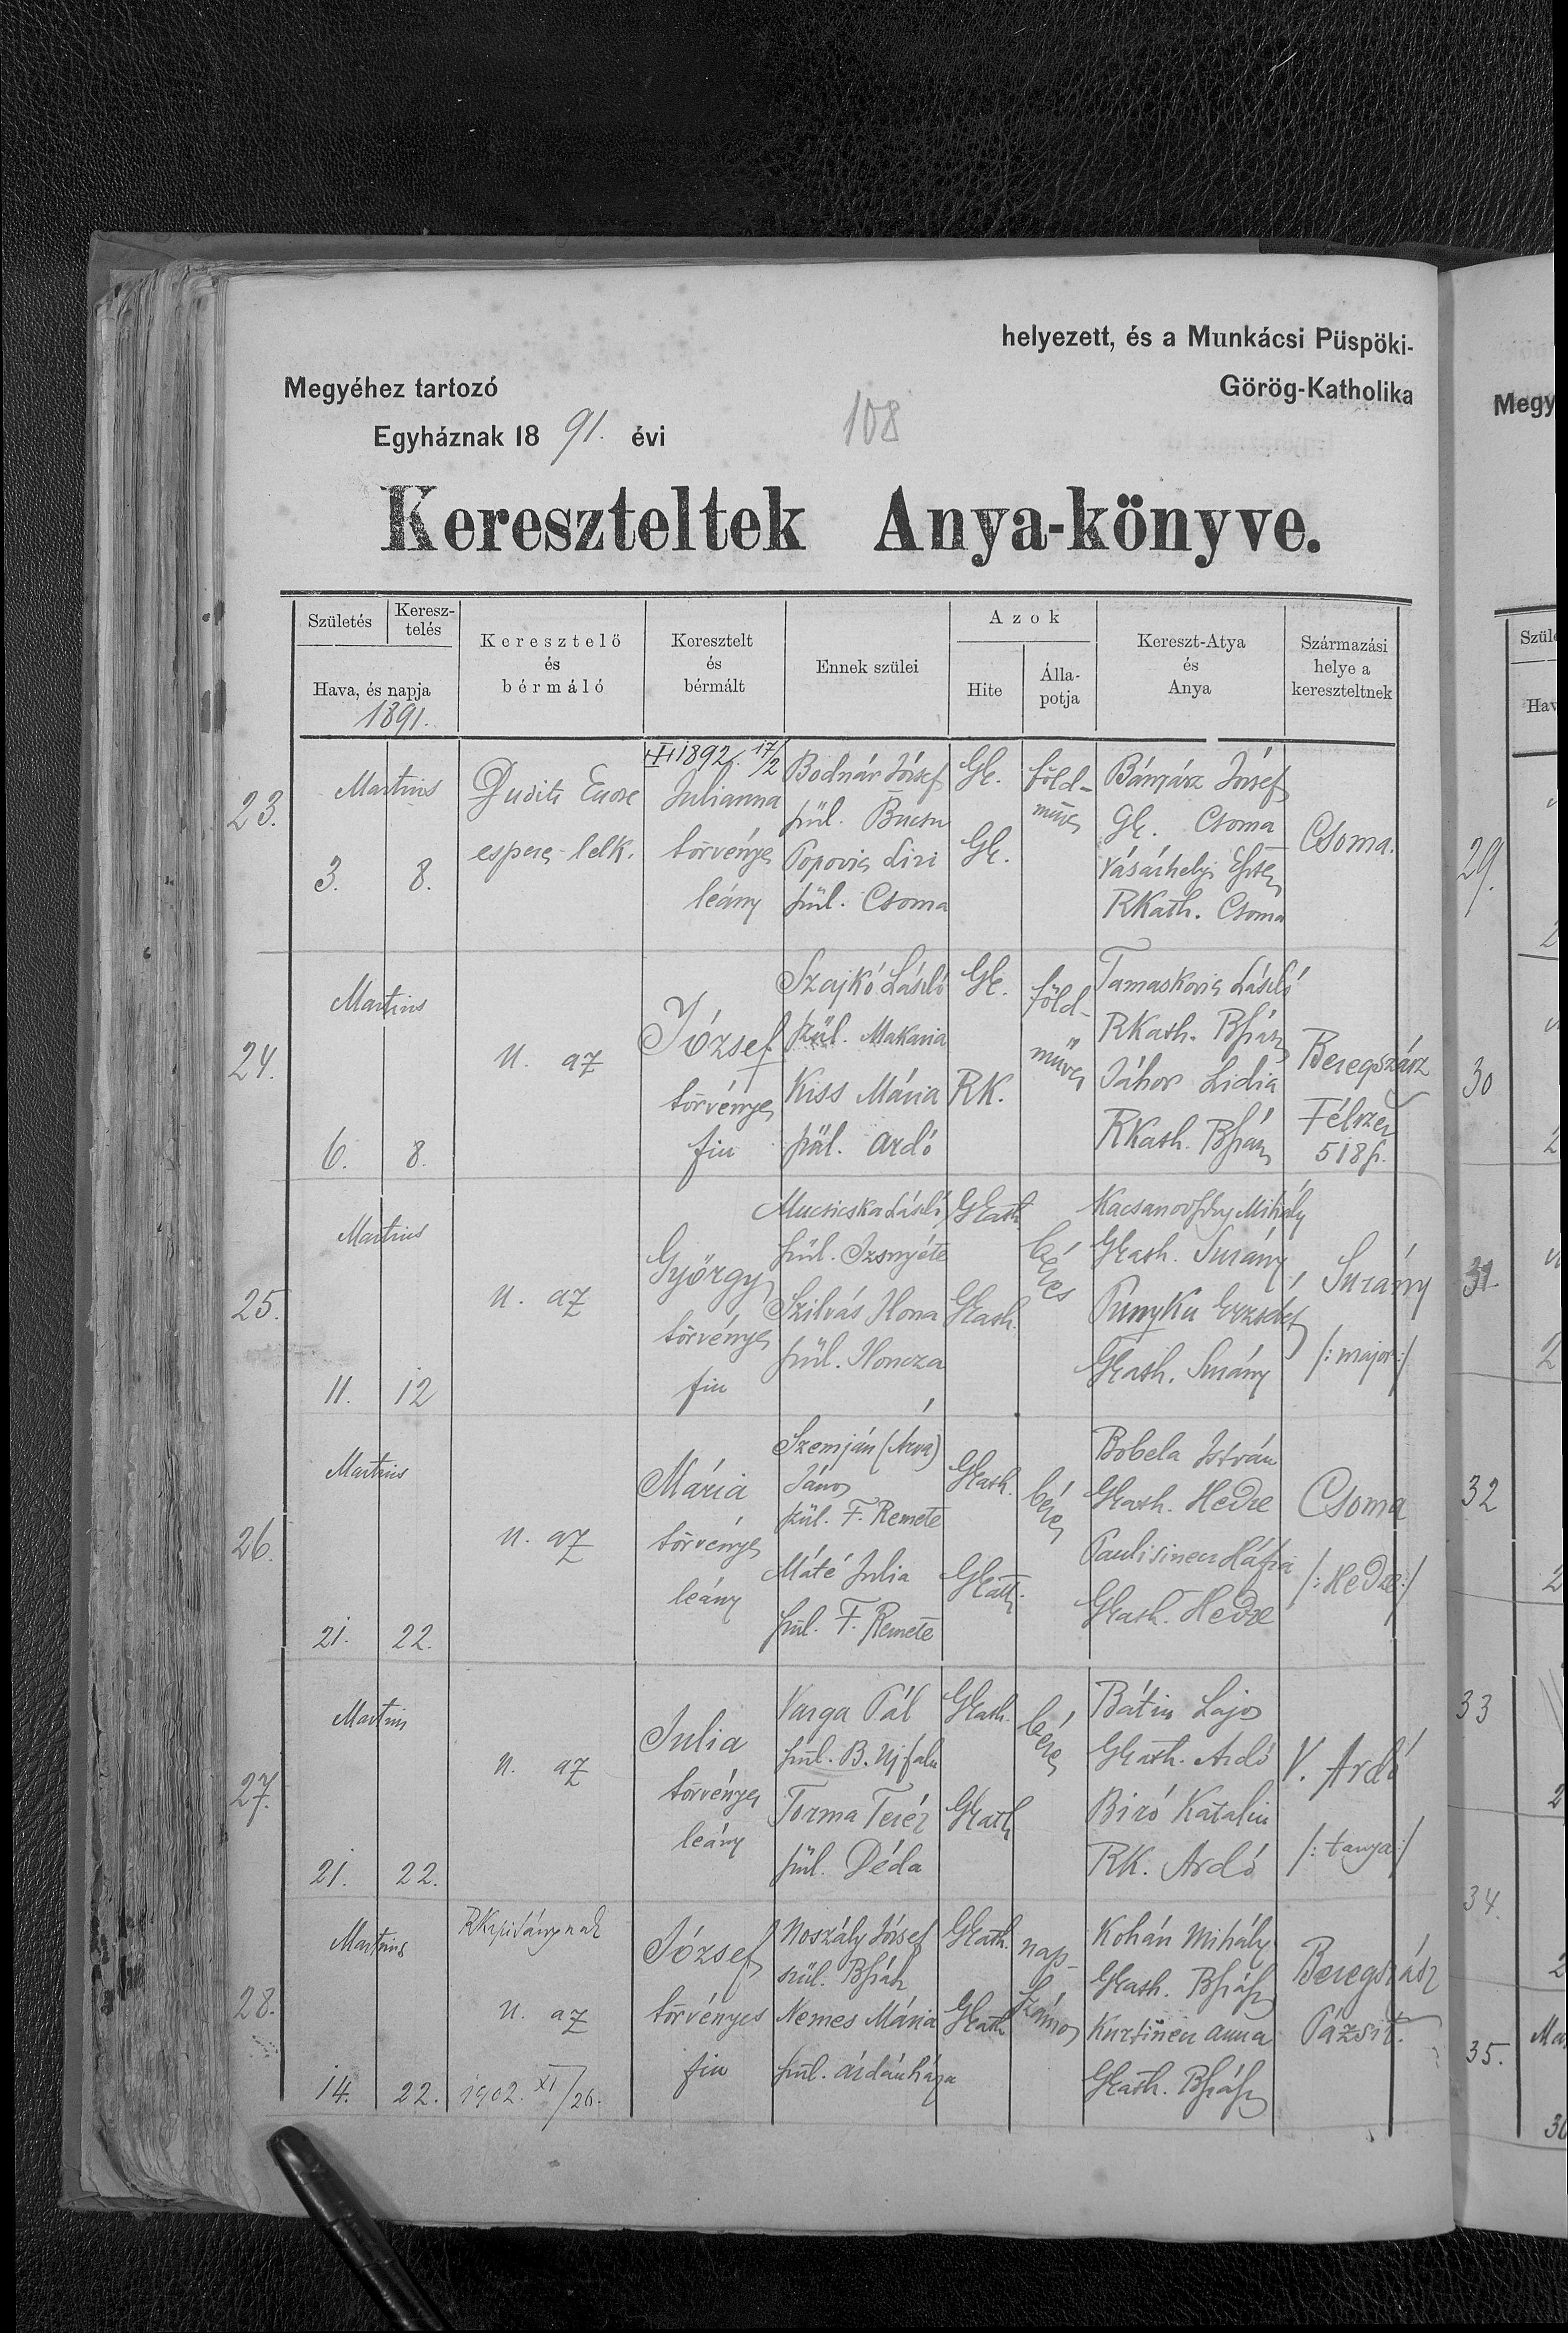 helyezett, és a Munkácsi Püspöki-
Megyéhez tartozó
Görög-Katholika
Egyháznak 1891. évi
108
Kereszteltek Anya-könyve.
Születés
Keresz-
telés
Hava, és napja
1891.
Keresztelö
és
bérmáló
Keresztelt
és
bérmált
Ennek szülei
Azok
Hite
Álla-
potja
Kereszt-Atya
és
Anya
Származási
helye a
kereszteltnek
23.
Martius
3. 8.
esperes lelk.
1892. 17/2
Julianna
törvényes
leány
Bodnár József
szül. Bucsu
Popovics Lizi
szül. Csoma
Gk.
Gk.
föld-
műves
József
Gk. Csoma
Vásárhelyi
RKath. Csoma
Csoma.
24.
Martius
6. 8.
u. az
József
törvényes
fiu
Szajkó László
szül. Makaria
Kiss Mária
szül. Ardó
Gk.
RK.
föld-
műves
Tamaskovics László
RKath. Bszász
Jáhor Lidia
RKath. Bszász
Beregszász
Félszer
518 sz.
25.
Martius
11. 12
u. az
György
törvényes
fiu
Mucsicska László
szül. Izsnyéte
Szilvás Ilona
szül. Iloncza
Gkath.
Gkath.
béres
Mihály
Gkath. Surány
Punyku Erzsébet
Gkath. Surány
Surány
/: major :/
26.
Martius
21. 22.
u. az
Mária
törvényes
leány
Szemján (Árva)
János
szül. F. Remete
Máté Julia
szül. F. Remete
Gkath.
Gkath.
béres
Bobela István
Gkath. Hedre
Gkath. Hedre
Csoma
/: Hedre :/
27.
Martius
21. 22.
u. az
Julia
törvényes
leány
Varga Pál
szül. B. Ujfalu
Torma Teréz
szül. Déda
Gkath.
Gkath
béres
Bátin Lajos
Gkath. Ardó
Biró Katalin
RK. Ardó
V. Ardó
/: tanya :/
28.
Martius
14. 22.
u. az
1902. XI/26.
József
törvényes
fiu
Noszály József
szül. Bszász
Nemes Mária
szül. Árdánháza
Gkath.
Gkath
nap-
számos
Kohán Mihály
Gkath. Bszász
Anna
Gkath. Bszász
Beregszász
Pázsit.
Megy
Szüle
Hav
29.
30
31.
32
33
34.
35.